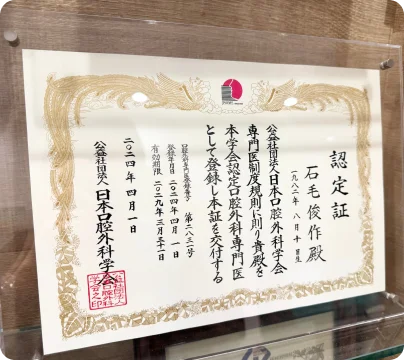 認定証
石毛俊作殿
一九八二年 八月十日生
公益社団法人日本口腔外科学会
専門医制度規則に則り貴殿を
本学会認定口腔外科専門医
として登録し本証を交付する
口腔外科専門医登録番号 第二八三一号
登録年月日 二〇二四年四月一日
有効期限 二〇二九年三月三十一日
二〇二四年四月一日
公益社団法人 日本口腔外科学会